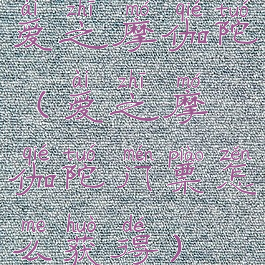 ài zhī mó qié tuó
爱之摩伽陀
ài zhī mó
（爱之摩
qié tuó mén piào zěn
伽陀门票怎
me huò dé
么获得）